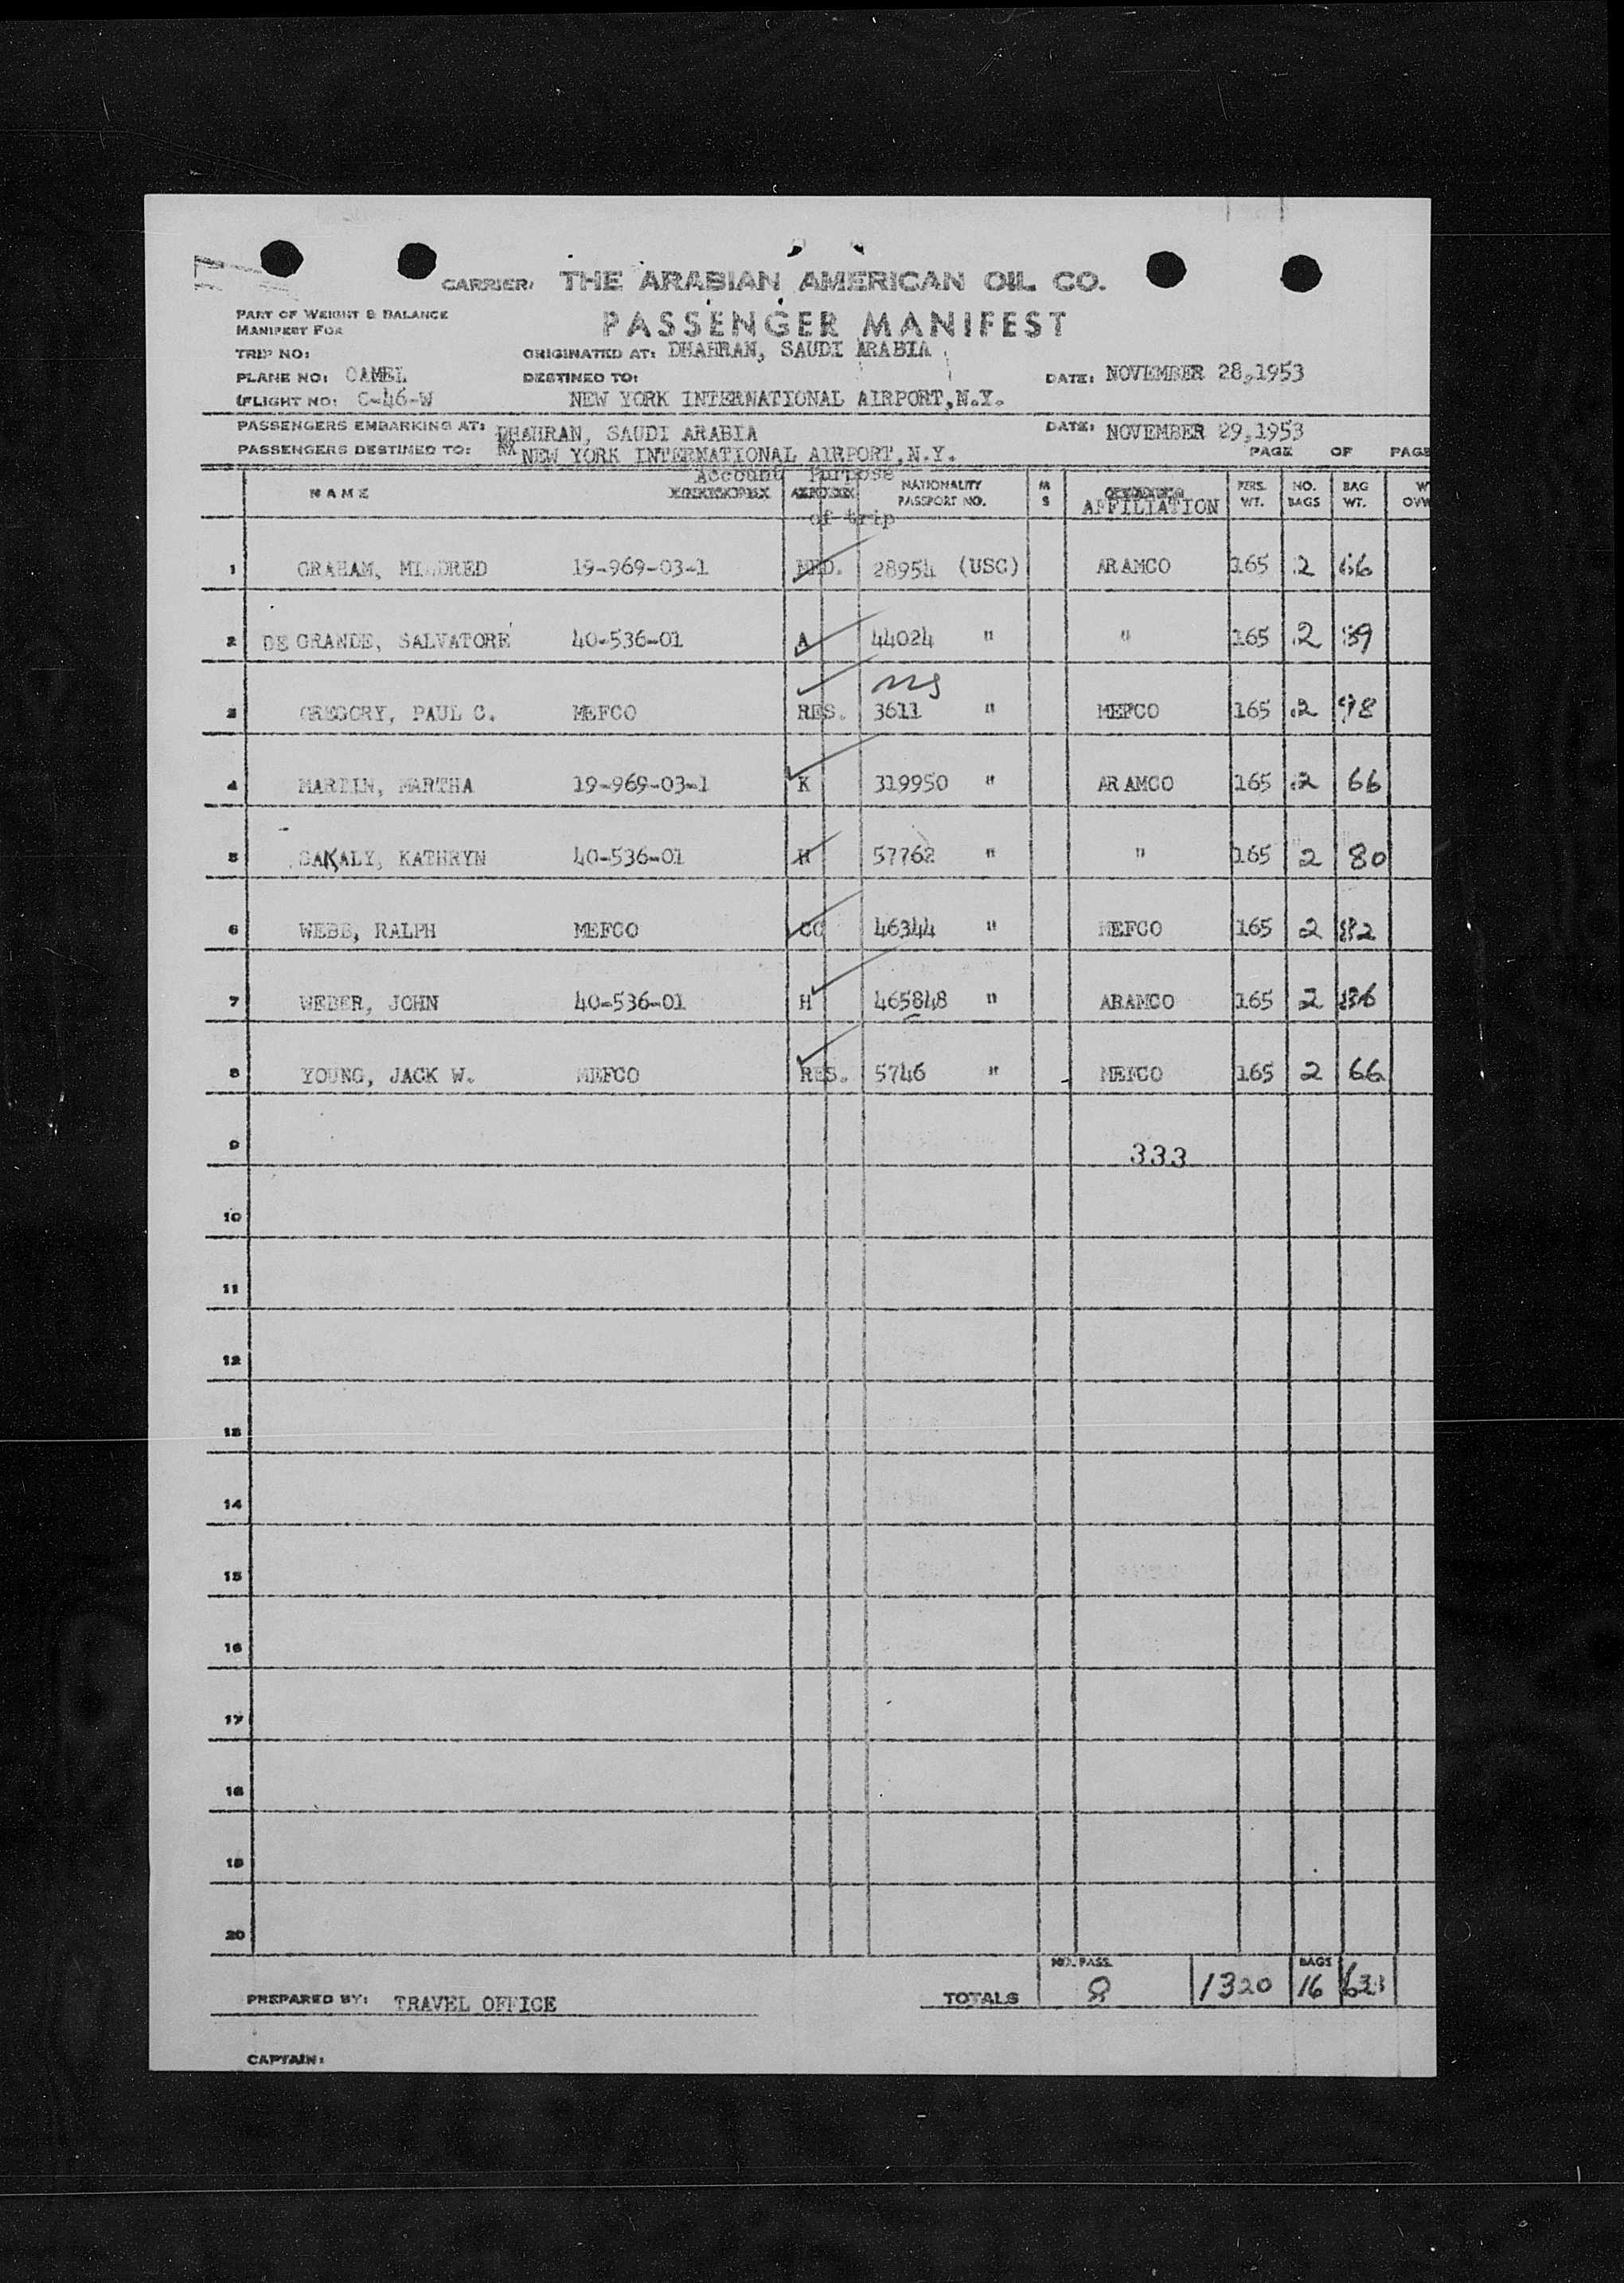 CARRIER: THE ARABIAN AMERICAN OIL CO.
PART OF WEIGHT & BALANCE
MANIFEST FOR
PASSENGER MANIFEST
TRIP NO:
ORIGINATED AT: DHAHRAN, SAUDI ARABIA
PLANE NO: CAMEL
DESTINED TO:
DATE: NOVEMBER 28,1953
FLIGHT NO: C-46-W
NEW YORK INTERNATIONAL AIRPORT,N.Y.
PASSENGERS EMBARKING AT: DHAHRAN, SAUDI ARABIA
DATE: NOVEMBER 29,1953
PASSENGERS DESTINED TO: NEW YORK INTERNATIONAL AIRPORT,N.Y.
PAGE OF PAGE
Account Purpose
of trip
NAME NATIONALITY PASSPORT NO. M S AFFILIATION PERS. WT. NO. BAGS BAG WT.
1 GRAHAM, MILDRED 19-969-03-1 MED. 28954 (USC) ARAMCO 165 2 66
2 DE GRANDE, SALVATORE 40-536-01 A 44024 " " 165 2 89
3 GREGORY, PAUL C. MEFCO RES. 3611 " MEFCO 165 2 98
4 MARTIN, MARTHA 19-969-03-1 K 319950 " ARAMCO 165 2 66
5 SAKALY, KATHRYN 40-536-01 H 57762 " " 165 2 80
6 WEBB, RALPH MEFCO CC 46344 " MEFCO 165 2 82
7 WEBER, JOHN 40-536-01 H 465848 " ARAMCO 165 2 86
8 YOUNG, JACK W. MEFCO RES. 5746 " MEFCO 165 2 66
9 333
10
11
12
13
14
15
16
17
18
19
20
PREPARED BY: TRAVEL OFFICE
TOTALS NO. PASS. 8 1320 BAGS 16 633
CAPTAIN: